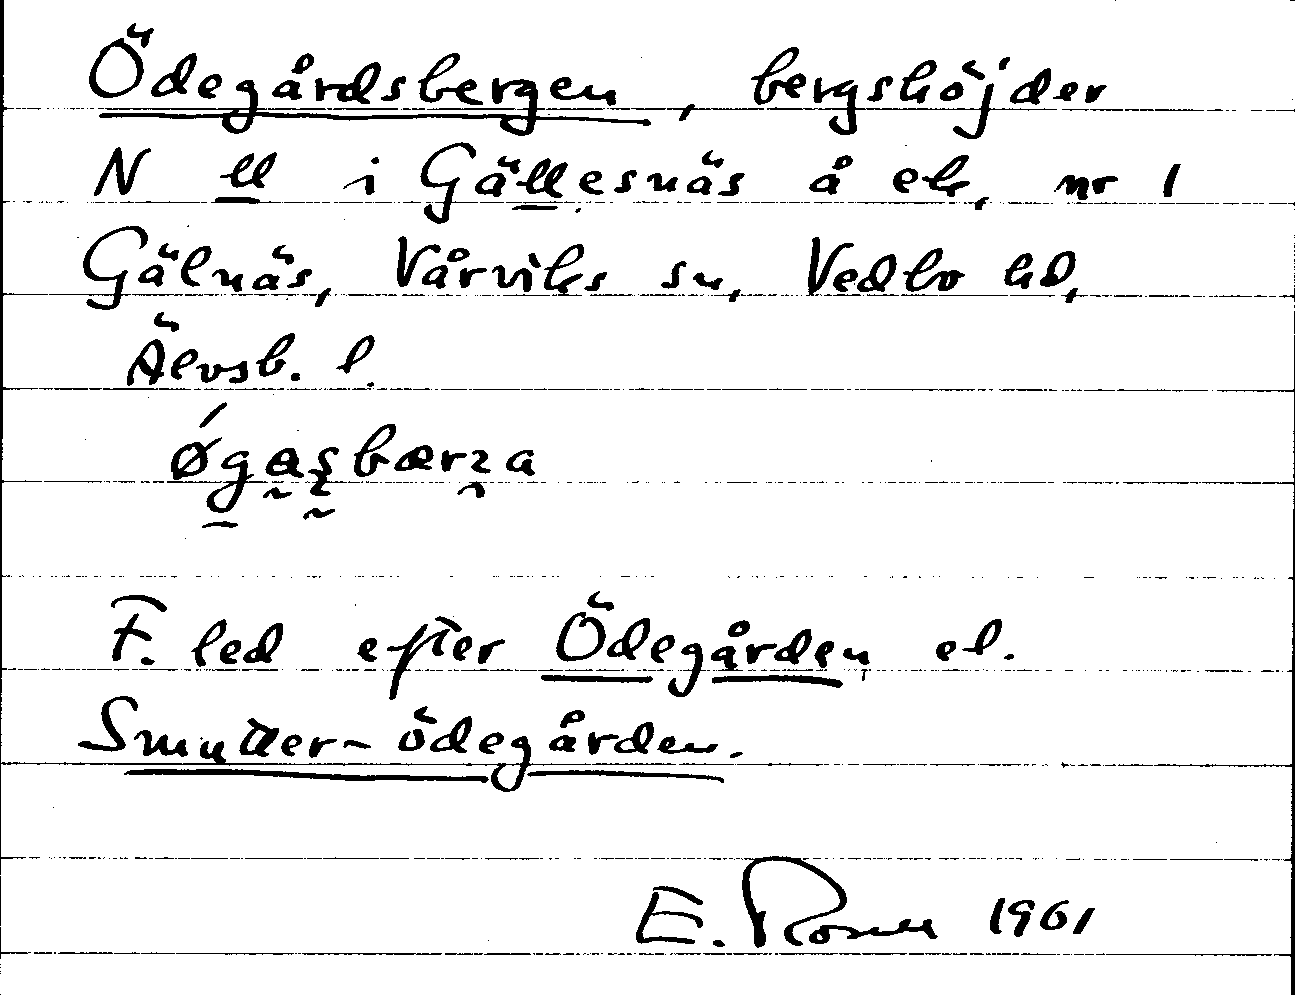 Ödegårdsbergen, bergshöjder
N ll i Gällesnäs å ek, nr 1
Gälnäs, Vårviks sn, Vedbo hd,
Älvsb. l.
F. led efter Ödegården el.
Smutter-ödegården.
E. 1961